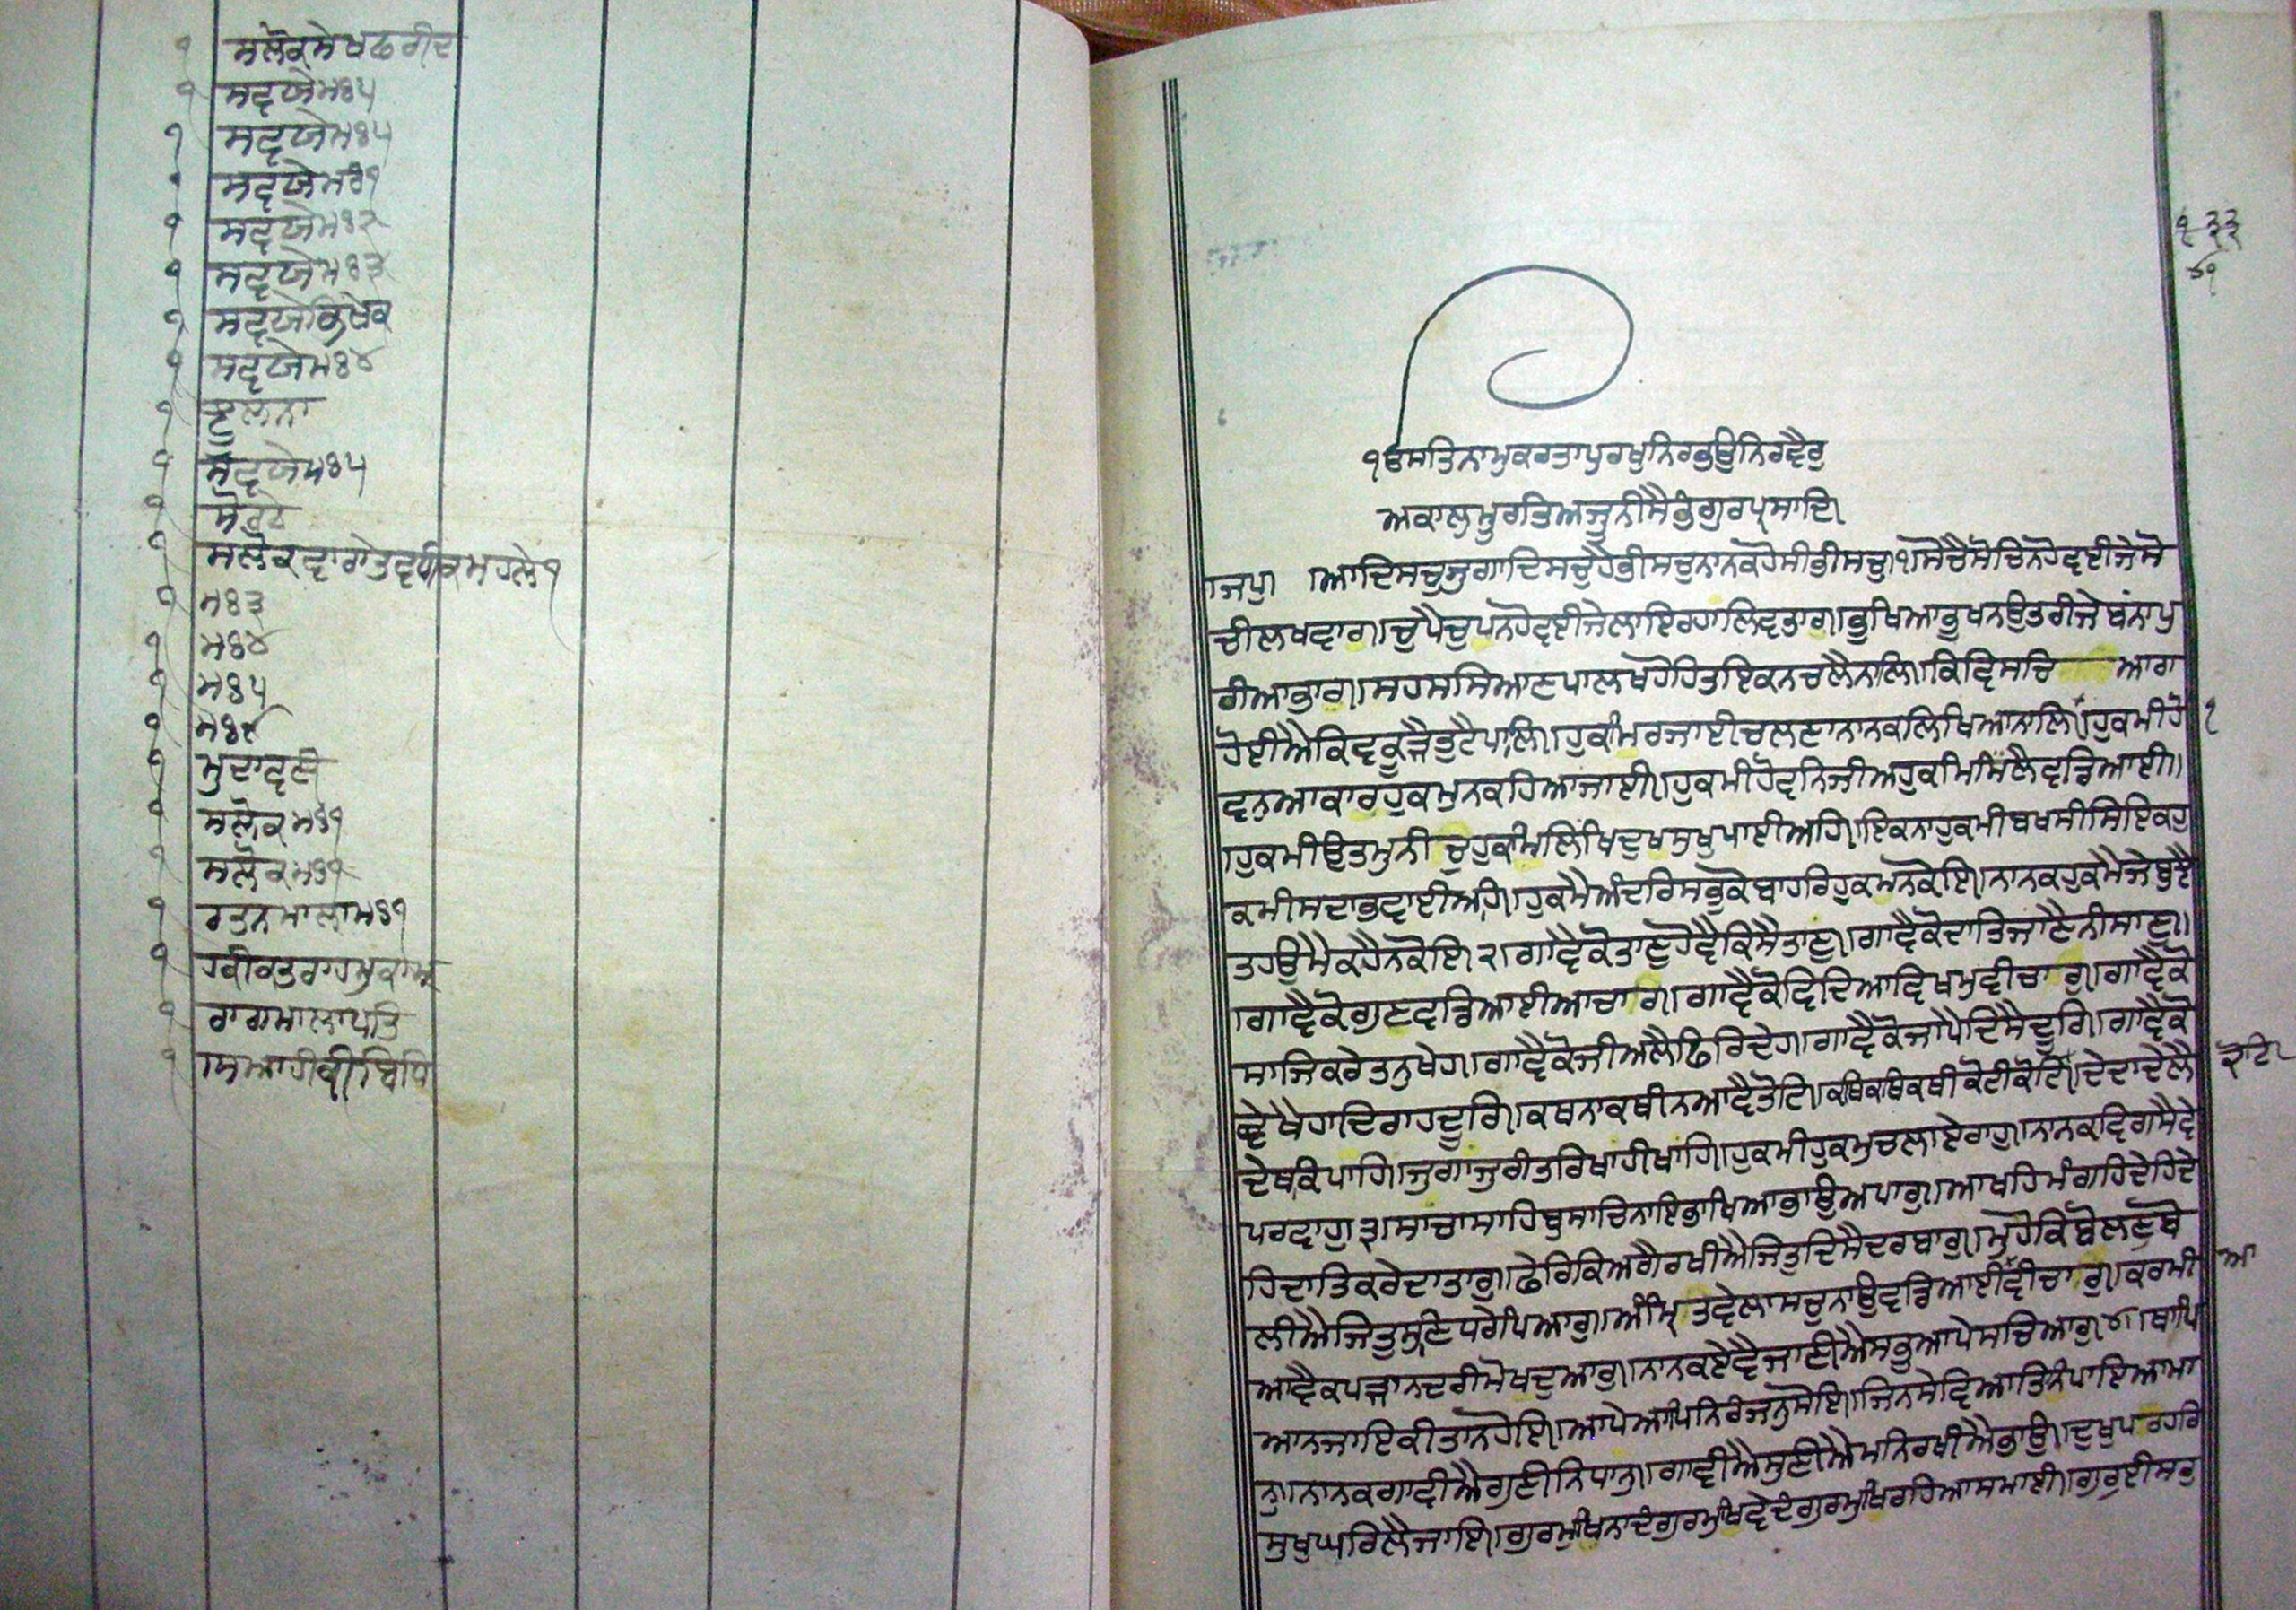 ੧ ਸਲੋਕ ਸੇਖ ਫਰੀਦ
੧ ਸਵਯੇ ਮਃ ੫
੧ ਸਵਯੇ ਮਃ ੫
੧ ਸਵਯੇ ਮਃ ੧
੧ ਸਵਯੇ ਮਃ ੨
੧ ਸਵਯੇ ਮਃ ੩
੧ ਸਵਯੇ
੧ ਸਵਯੇ ਮਃ ੪
੧ ਝੂਲਨਾ
੧ ਸਵਯੇ ਮਃ ੫
੧ ਸੋਰਠੇ
੧ ਸਲੋਕ ਵਾਰਾ ਤੇ ਵਧੀਕ ਮਹਲੇ ੧
੧ ਮਃ ੩
੧ ਮਃ ੪
੧ ਮਃ ੫
੧ ਮਃ ੯
੧ ਮੁਦਾਵਣੀ
੧ ਸਲੋਕ ਮਃ ੧
੧ ਸਲੋਕ ਮਃ ੧
੧ ਰਤਨਮਾਲਾ ਮਃ ੧
੧ ਹਕੀਕਤ ਰਾਹ ਮੁਕਾਮ
੧ ਰਾਗਮਾਲਾ
੧ ।ਸਿਆਹੀ ਕੀ ਬਿਧਿ
੧ੳ ਸਤਿ ਨਾਮੁ ਕਰਤਾ ਪੁਰਖੁ ਨਿਰਭਉ ਨਿਰਵੈਰੁ
ਅਕਾਲ ਮੂਰਤਿ ਅਜੂਨੀ ਸੈਭੰ ਗੁਰ ਪ੍ਰਸਾਦਿ।
।ਜਪੁ। ।ਆਦਿ ਸਚੁ ਜੁਗਾਦਿ ਸਚੁ ਹੈ ਭੀ ਸਚੁ ਨਾਨਕ ਹੋਸੀ ਭੀ ਸਚੁ।੧। ਸੋਚੈ ਸੋਚਿ ਨ ਹੋਵਈ ਜੇ ਸੋ
ਚੀ ਲਖ ਵਾਰ।। ਚੁਪੈ ਚੁਪ ਨ ਹੋਵਈ ਜੇ ਲਾਇ ਰਹਾ ਲਿਵਤਾਰ।। ਭੁਖਿਆ ਭੁਖ ਨ ਉਤਰੀ ਜੇ ਬੰਨਾ ਪੁ
ਰੀਆ ਭਾਰ।। ਸਹਸ ਸਿਆਣਪਾ ਲਖ ਹੋਹਿ ਤ ਇਕ ਨ ਚਲੈ ਨਾਲਿ।। ਕਿਵ ਸਚਿ ਆਰਾ
ਹੋਈਐ ਕਿਵ ਕੂੜੈ ਤੁਟੈ ਪਾਲਿ।। ਹੁਕਮਿ ਰਜਾਈ ਚਲਣਾ ਨਾਨਕ ਲਿਖਿਆ ਨਾਲਿ। ਹੁਕਮੀ ਹੋ ੧
ਵਨੁ ਆਕਾਰ ਹੁਕਮੁ ਨ ਕਹਿਆ ਜਾਈ।। ਹੁਕਮੀ ਹੋਵਨਿ ਜੀਅ ਹੁਕਮਿ ਮਿਲੈ ਵਡਿਆਈ।।
।ਹੁਕਮੀ ਉਤਮੁ ਨੀਚੁ ਹੁਕਮਿ ਲਿਖਿ ਦੁਖ ਸੁਖ ਪਾਈਅਹਿ।। ਇਕਨਾ ਹੁਕਮੀ ਬਖਸੀਸ ਇਕਿ ਹੁ
ਕਮੀ ਸਦਾ ਭਵਾਈਅਹਿ।। ਹੁਕਮੈ ਅੰਦਰਿ ਸਭੁ ਕੋ ਬਾਹਰਿ ਹੁਕਮ ਨ ਕੋਇ।। ਨਾਨਕ ਹੁਕਮੈ ਜੇ ਬੁਝੈ
ਤ ਹਉਮੈ ਕਹੈ ਨ ਕੋਇ।੨। ਗਾਵੈ ਕੋ ਤਾਣੁ ਹੋਵੈ ਕਿਸੈ ਤਾਣੁ।। ਗਾਵੈ ਕੋ ਦਾਤਿ ਜਾਣੈ ਨੀਸਾਣੁ।।
।ਗਾਵੈ ਕੋ ਗੁਣ ਵਡਿਆਈਆ ਚਾਰ।। ਗਾਵੈ ਕੋ ਵਿਦਿਆ ਵਿਖਮੁ ਵੀਚਾਰੁ।। ਗਾਵੈ ਕੋ
ਸਾਜਿ ਕਰੇ ਤਨੁ ਖੇਹ।। ਗਾਵੈ ਕੋ ਜੀਅ ਲੈ ਫਿਰਿ ਦੇਹ।। ਗਾਵੈ ਕੋ ਜਾਪੈ ਦਿਸੈ ਦੂਰਿ।। ਗਾਵੈ ਕੋ
ਵੇਖੈ ਹਾਦਰਾ ਹਦੂਰਿ।। ਕਥਨਾ ਕਥੀ ਨ ਆਵੈ ਤੋਟਿ।। ਕਥਿ ਕਥਿ ਕਥੀ ਕੋਟੀ ਕੋਟਿ।। ਦੇਦਾ ਦੇ ਲੈ
ਦੇ ਥਕਿ ਪਾਹਿ।। ਜੁਗਾ ਜੁਗੰਤਰਿ ਖਾਹੀ ਖਾਹਿ।। ਹੁਕਮੀ ਹੁਕਮੁ ਚਲਾਏ ਰਾਹੁ।। ਨਾਨਕ ਵਿਗਸੈ ਵੇ
ਪਰਵਾਹੁ।੩। ਸਾਚਾ ਸਾਹਿਬੁ ਸਾਚਿ ਨਾਇ ਭਾਖਿਆ ਭਾਉ ਅਪਾਰੁ।। ਆਖਹਿ ਮੰਗਹਿ ਦੇਹਿ ਦੇ
ਹਿ ਦਾਤਿ ਕਰੇ ਦਾਤਾਰੁ।। ਫੇਰਿ ਕਿ ਅਗੈ ਰਖੀਐ ਜਿਤੁ ਦਿਸੈ ਦਰਬਾਰੁ।। ਮੁਹੌ ਕਿ ਬੋਲਣੁ ਬੋ
ਲੀਐ ਜਿਤੁ ਸੁਣਿ ਧਰੇ ਪਿਆਰੁ।। ਅੰਮ੍ਰਿਤ ਵੇਲਾ ਸਚੁ ਨਾਉ ਵਡਿਆਈ ਵੀਚਾਰੁ।। ਕਰਮੀ
ਆਵੈ ਕਪੜਾ ਨਦਰੀ ਮੋਖ ਦੁਆਰੁ।। ਨਾਨਕ ਏਵੈ ਜਾਣੀਐ ਸਭੁ ਆਪੇ ਸਚਿਆਰੁ।੪। ਥਾਪਿ
ਆ ਨ ਜਾਇ ਕੀਤਾ ਨ ਹੋਇ।। ਆਪੇ ਆਪਿ ਨਿਰੰਜਨੁ ਸੋਇ।। ਜਿਨਿ ਸੇਵਿਆ ਤਿਨਿ ਪਾਇਆ ਮਾ
ਨੁ।। ਨਾਨਕ ਗਾਵੀਐ ਗੁਣੀ ਨਿਧਾਨੁ।। ਗਾਵੀਐ ਸੁਣੀਐ ਮਨਿ ਰਖੀਐ ਭਾਉ।। ਦੁਖੁ ਪਰਹਰਿ
ਸੁਖੁ ਘਰਿ ਲੈ ਜਾਇ।। ਗੁਰਮੁਖਿ ਨਾਦੰ ਗੁਰਮੁਖਿ ਵੇਦੰ ਗੁਰਮੁਖਿ ਰਹਿਆ ਸਮਾਈ।। ਗੁਰੁ ਈਸਰੁ
੧੩੩
੪੧